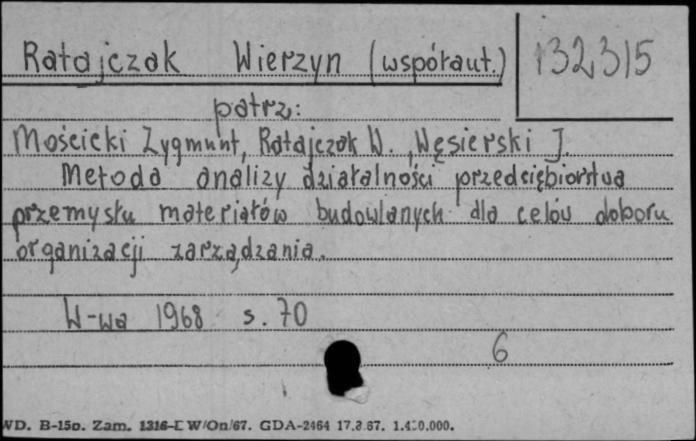 Ratajczak Wierzyn (współaut.) 132315
patrz:
Mościcki Zygmunt, Ratajczak W., Węsierski J
Metoda analizy działalności przedsiębiorstwa
przemysłu materiałów budowlanych dla celów doboru
organizacji zarządzania.
W-wa 1968 s. 70
6
WD. B-15b. Zam. 1316-E W/On/67. GDA-2464 17.3.67.